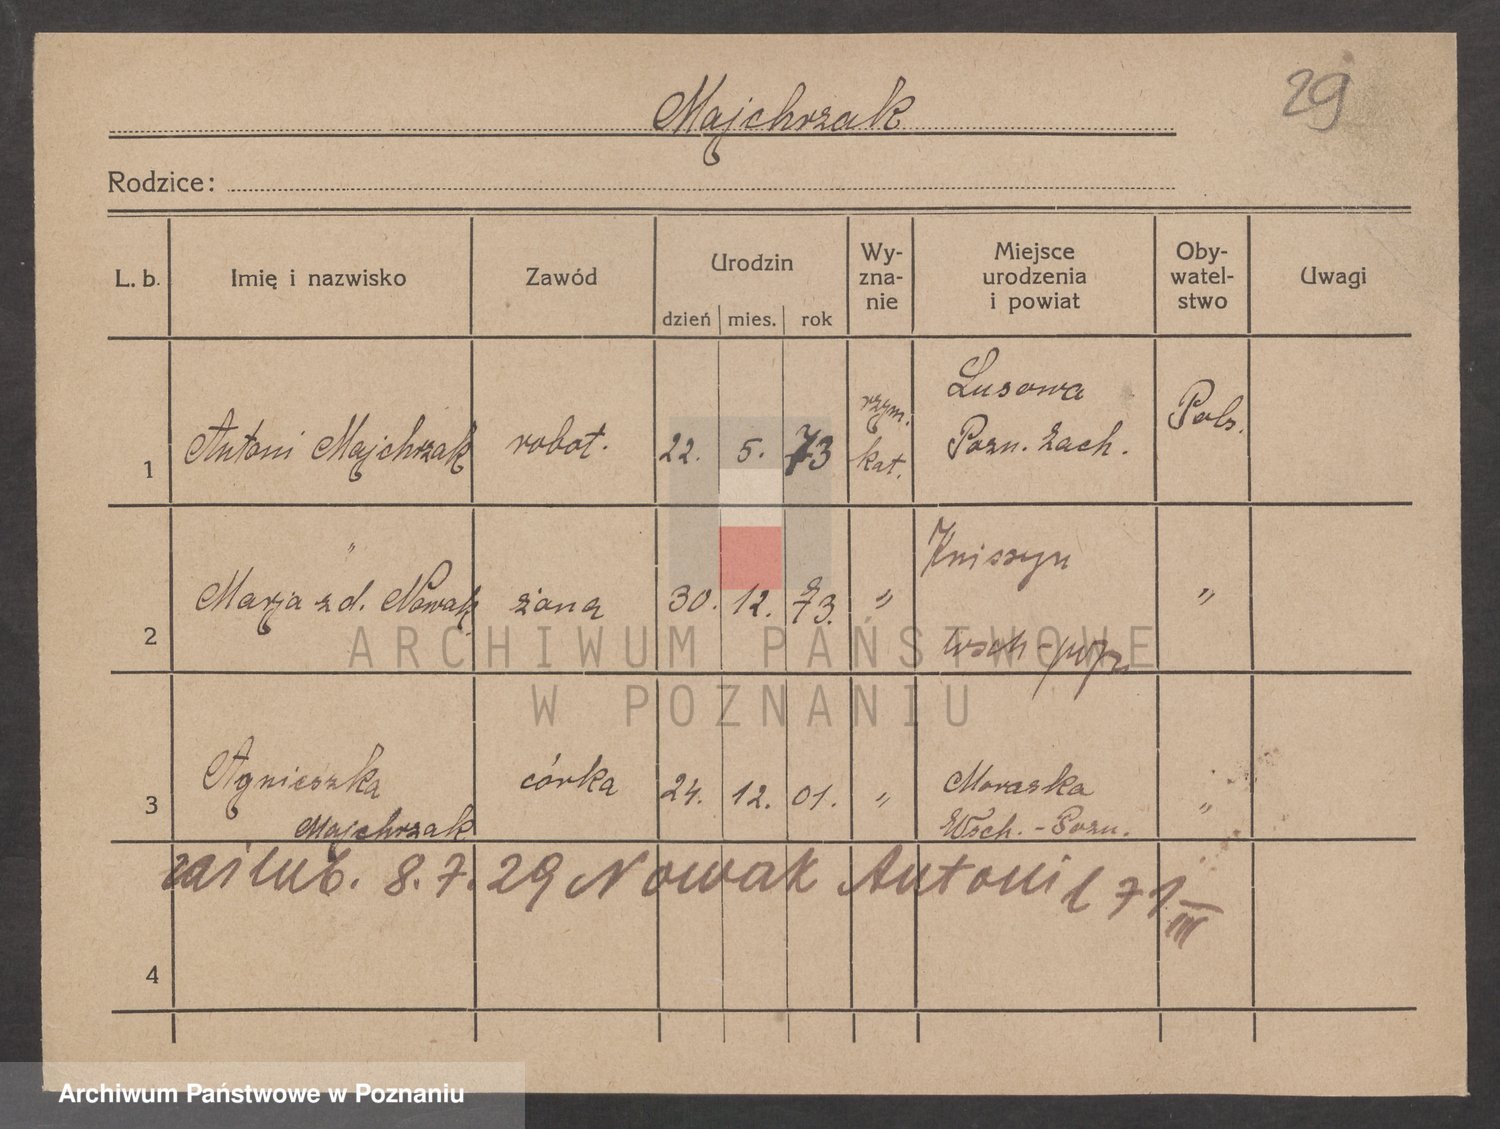 29
Majchrzak
Rodzice:
L. b. Imię i nazwisko Zawód Urodzin dzień mies. rok Wy-zna-nie Miejsce urodzenia i powiat Oby-watel-stwo Uwagi
1 Antoni Majchrzak robot. 22. 5. 73 rzym. kat. Lusowa Pozn. Zach. Pols.
2 " Marja z d. Nowak żona 30. 12. 73. " Kniszyn Wsch - "
3 Agnieszka Majchrzak córka 24. 12. 01. " Moraska Wsch. - Pozn. "
zaślub. 8. 7. 29 Nowak Antoni 71 III
4
ARCHIWUM PAŃSTWOWE
W POZNANIU
Archiwum Państwowe w Poznaniu